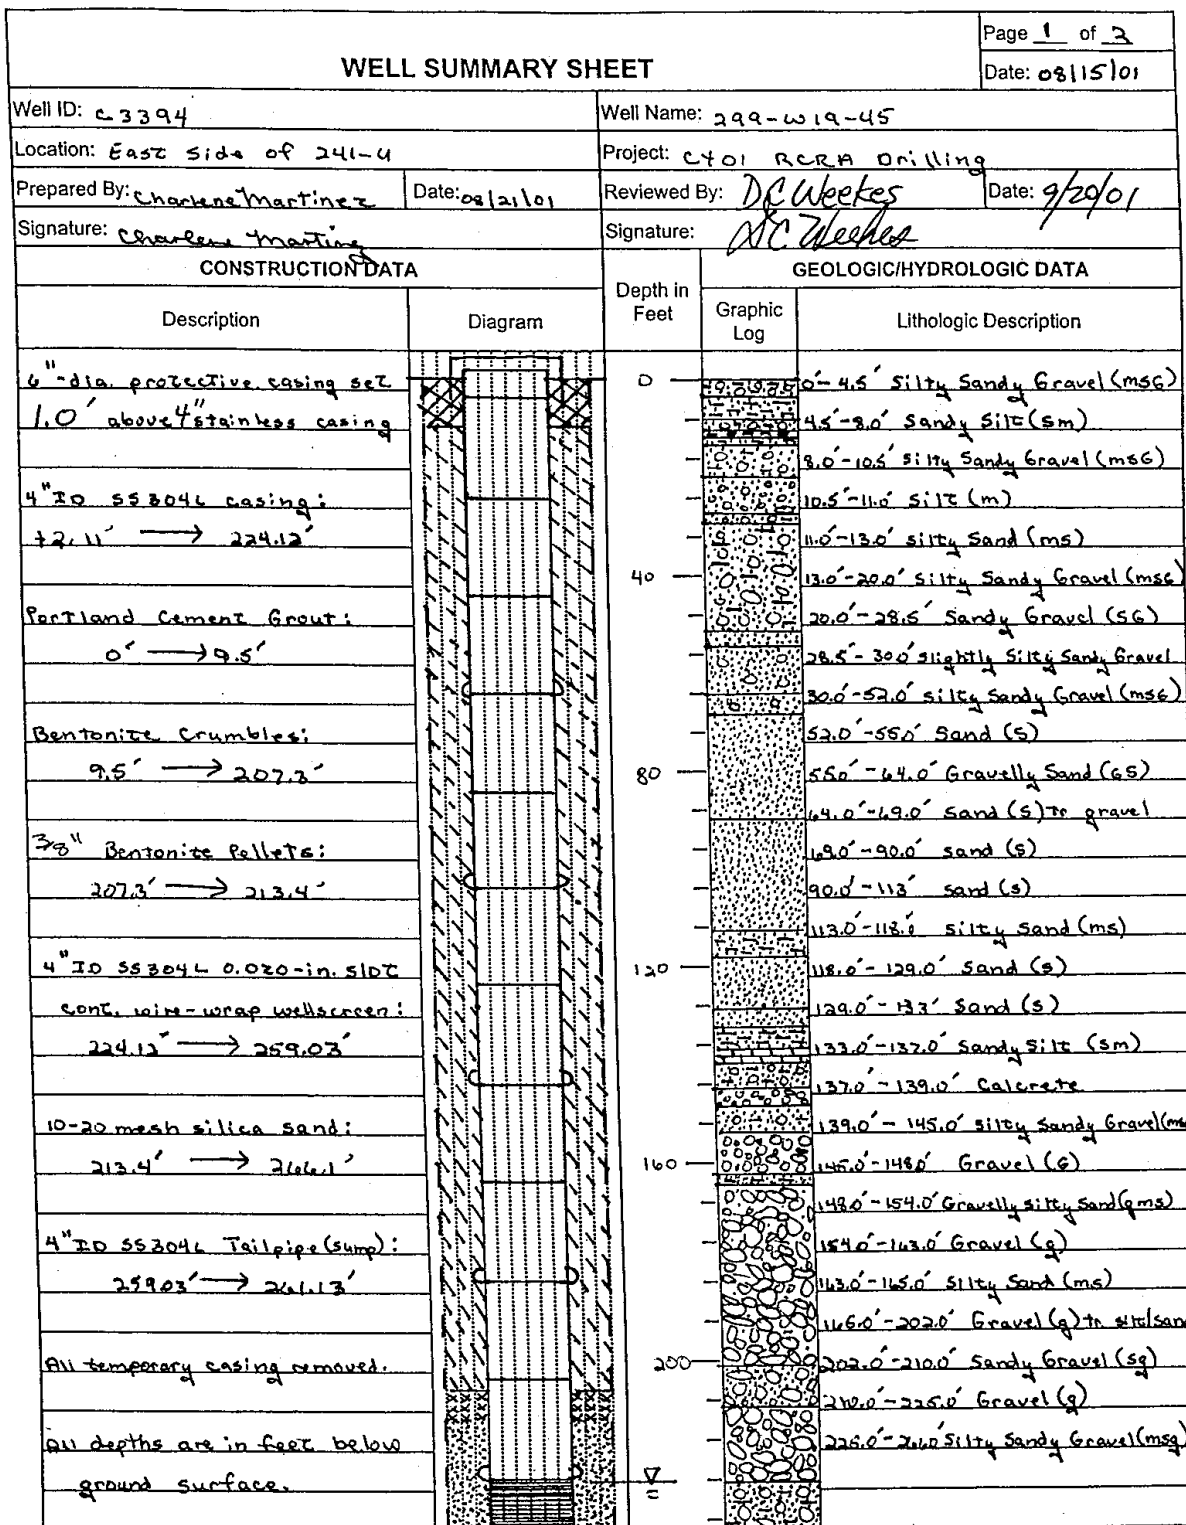 Page 1 of 2
WELL SUMMARY SHEET
Date: 08/15/01
Well ID: C3394
Well Name: 299-W19-45
Location: East Side of 241-U
Project: CY01 RCRA Drilling
Prepared By: Charlene Martinez
Date: 08/21/01
Reviewed By: DC Weekes
Date: 9/20/01
Signature: Charlene Martinez
Signature: DC Weekes
CONSTRUCTION DATA
GEOLOGIC/HYDROLOGIC DATA
Description
Diagram
Depth in Feet
Graphic Log
Lithologic Description
6"-dia. protective casing set
1.0' above 4" stainless casing
4" ID SS304L casing:
+2.11' → 224.12'
Portland Cement Grout:
0' → 9.5'
Bentonite Crumbles:
9.5' → 207.3'
3/8" Bentonite Pellets:
207.3' → 213.4'
4" ID SS304L 0.020-in. slot
cont. wire-wrap wellscreen:
224.12' → 259.03'
10-20 mesh silica sand:
213.4' → 266.1'
4" ID SS304L Tailpipe (sump):
259.03' → 261.13'
All temporary casing removed.
All depths are in feet below
ground surface.
0
40
80
120
160
200
0'-4.5' Silty Sandy Gravel (msG)
4.5'-8.0' Sandy Silt (sm)
8.0'-10.5' Silty Sandy Gravel (msG)
10.5'-11.0' Silt (m)
11.0'-13.0' Silty Sand (ms)
13.0'-20.0' Silty Sandy Gravel (msG)
20.0'-28.5' Sandy Gravel (sG)
28.5'-30.0' Slightly Silty Sandy Gravel
30.0'-52.0' Silty Sandy Gravel (msG)
52.0'-55.0' Sand (S)
55.0'-64.0' Gravelly Sand (GS)
64.0'-69.0' Sand (S) tr gravel
69.0'-90.0' Sand (S)
90.0'-113' Sand (s)
113.0'-118.0' Silty Sand (ms)
118.0'-129.0' Sand (s)
129.0'-133' Sand (S)
133.0'-137.0' Sandy Silt (sm)
137.0'-139.0' Calcrete
139.0'-145.0' Silty Sandy Gravel (ms
145.0'-148.0' Gravel (G)
148.0'-154.0' Gravelly Silty Sand (gms)
154.0'-163.0' Gravel (g)
163.0'-165.0' Silty Sand (ms)
165.0'-202.0' Gravel (g) tr silt/sand
202.0'-210.0' Sandy Gravel (sg)
210.0'-225.0' Gravel (g)
Silty Sandy Gravel (msg)